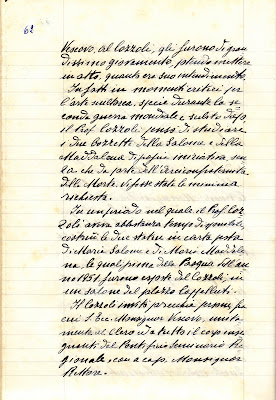 62
Vescovo, al Cozzoli, gli furono di gran
dissimo giovamento, potendo mettere
in atto, quanto era suo intendimento.
Infatti in momenti critici per
l'arte scultorea, specie durante la se
conda guerra mondiale e subito dopo,
il Prof. Cozzoli pensò di studiare
i due bozzetti della Salome e della
Maddalena di propria iniziativa, sen
za che da parte dell'Arciconfraternita
della Morte vi fosse stata la minima
richiesta.
In un periodo nel quale il Prof. Coz
zoli aveva abbastanza tempo disponibile,
costruì le due statue in carta pesta
di Maria Salome e di Maria Maddale
na, le quali prima della Pasqua dell'an
no 1951 furono esposte dal Cozzoli, in
un salone del palazzo Cappelluti.
Il Cozzoli invitò parecchie persone, fra
cui S. Ecc. Monsignor Vescovo, unita
mente al Clero ed a tutto il corpo inse
gnanti del Pontificio Seminario Re
gionale, con a capo, Monsignor
Rettore.